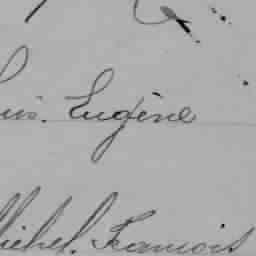 Eugène
Michel. Francois